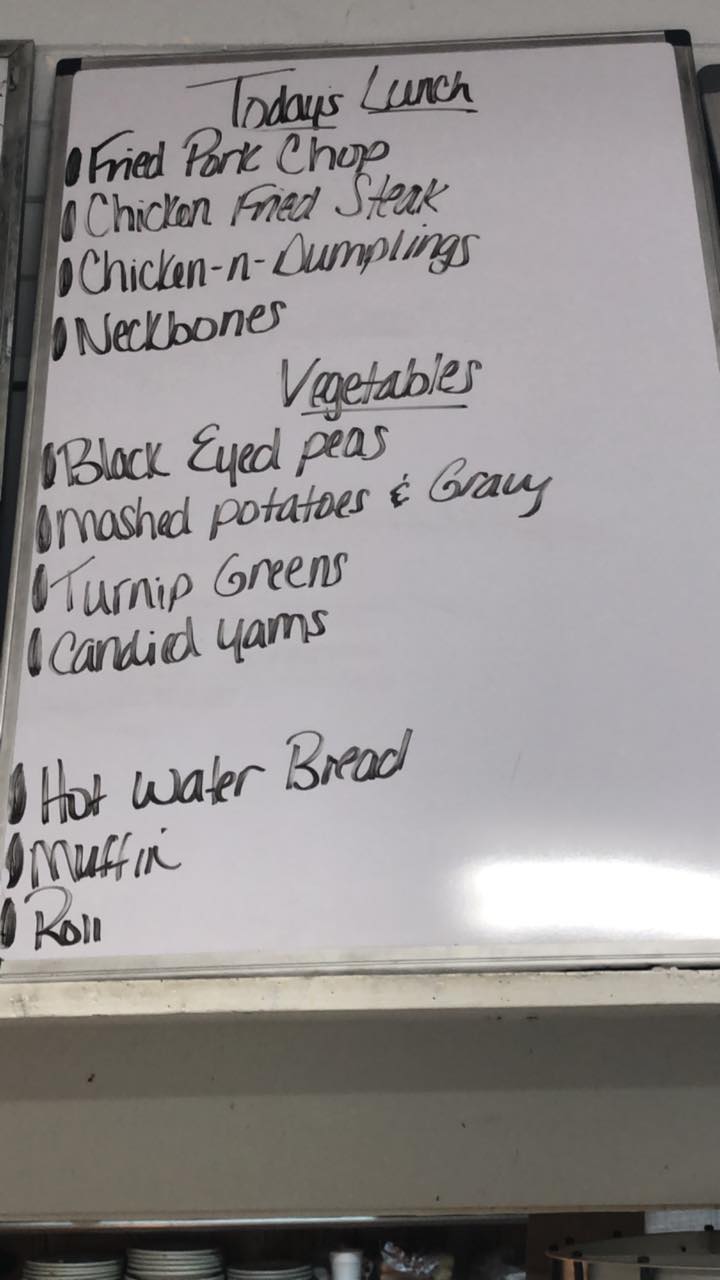 Today's Lunch
Fried Pork Chop
Chicken Fried Steak
Chicken-n-Dumplings
Neckbones
Vegetables
Black Eyed peas
mashed potatoes & Gravy
Turnip Greens
Candied yams
Hot water Bread
Muffin
Roll